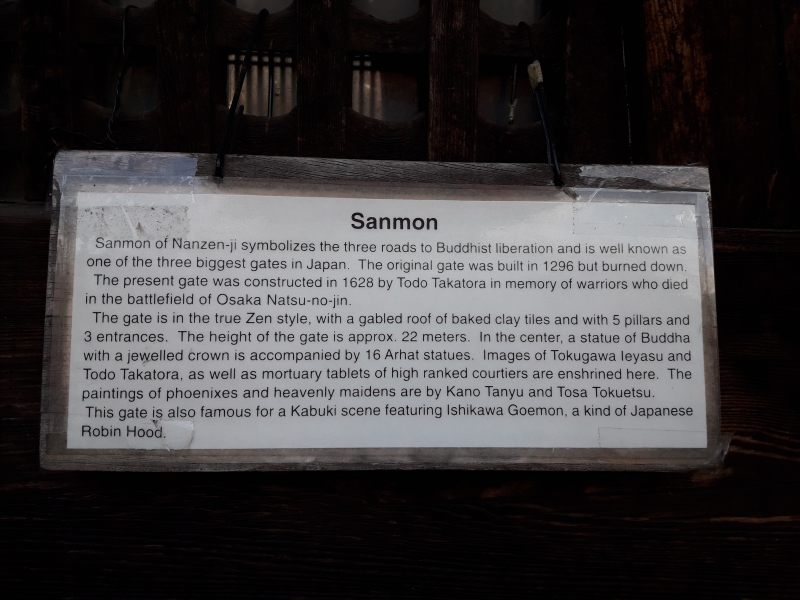 Sanmon
Sanmon of Nanzen-ji symbolizes the three roads to Buddhist liberation and is well known as
one of the three biggest gates in Japan. The original gate was built in 1296 but burned down.
The present gate was constructed in 1628 by Todo Takatora in memory of warriors who died
in the battlefield of Osaka Natsu-no-jin.
The gate is in the true Zen style, with a gabled roof of baked clay tiles and with 5 pillars and
3 entrances. The height of the gate is approx. 22 meters. In the center, a statue of Buddha
with a jewelled crown is accompanied by 16 Arhat statues. Images of Tokugawa Ieyasu and
Todo Takatora, as well as mortuary tablets of high ranked courtiers are enshrined here. The
paintings of phoenixes and heavenly maidens are by Kano Tanyu and Tosa Tokuetsu.
This gate is also famous for a Kabuki scene featuring Ishikawa Goemon, a kind of Japanese
Robin Hood.